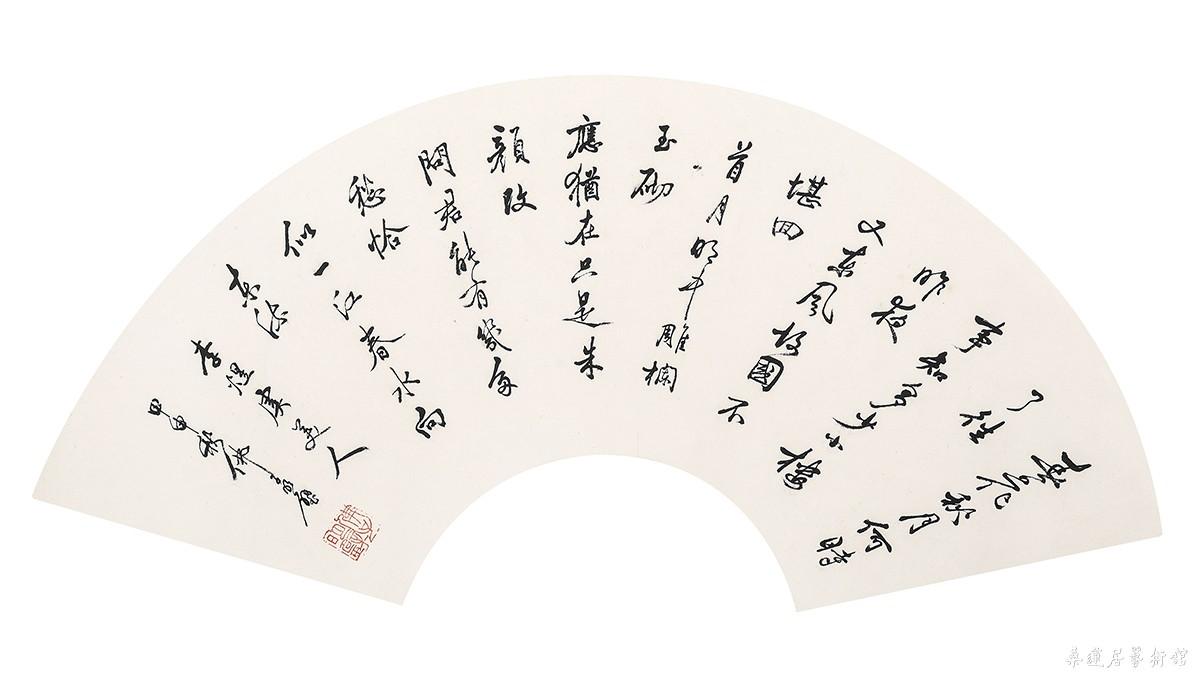 春花秋月何時
了往
事知多少小樓
昨夜
又東風故國不
堪回
首月明中雕欄
玉砌
應猶在只是朱
顏改
問君能有幾多
愁恰
似一江春水向
東流
李煜虞美人
桑蓮居藝術館